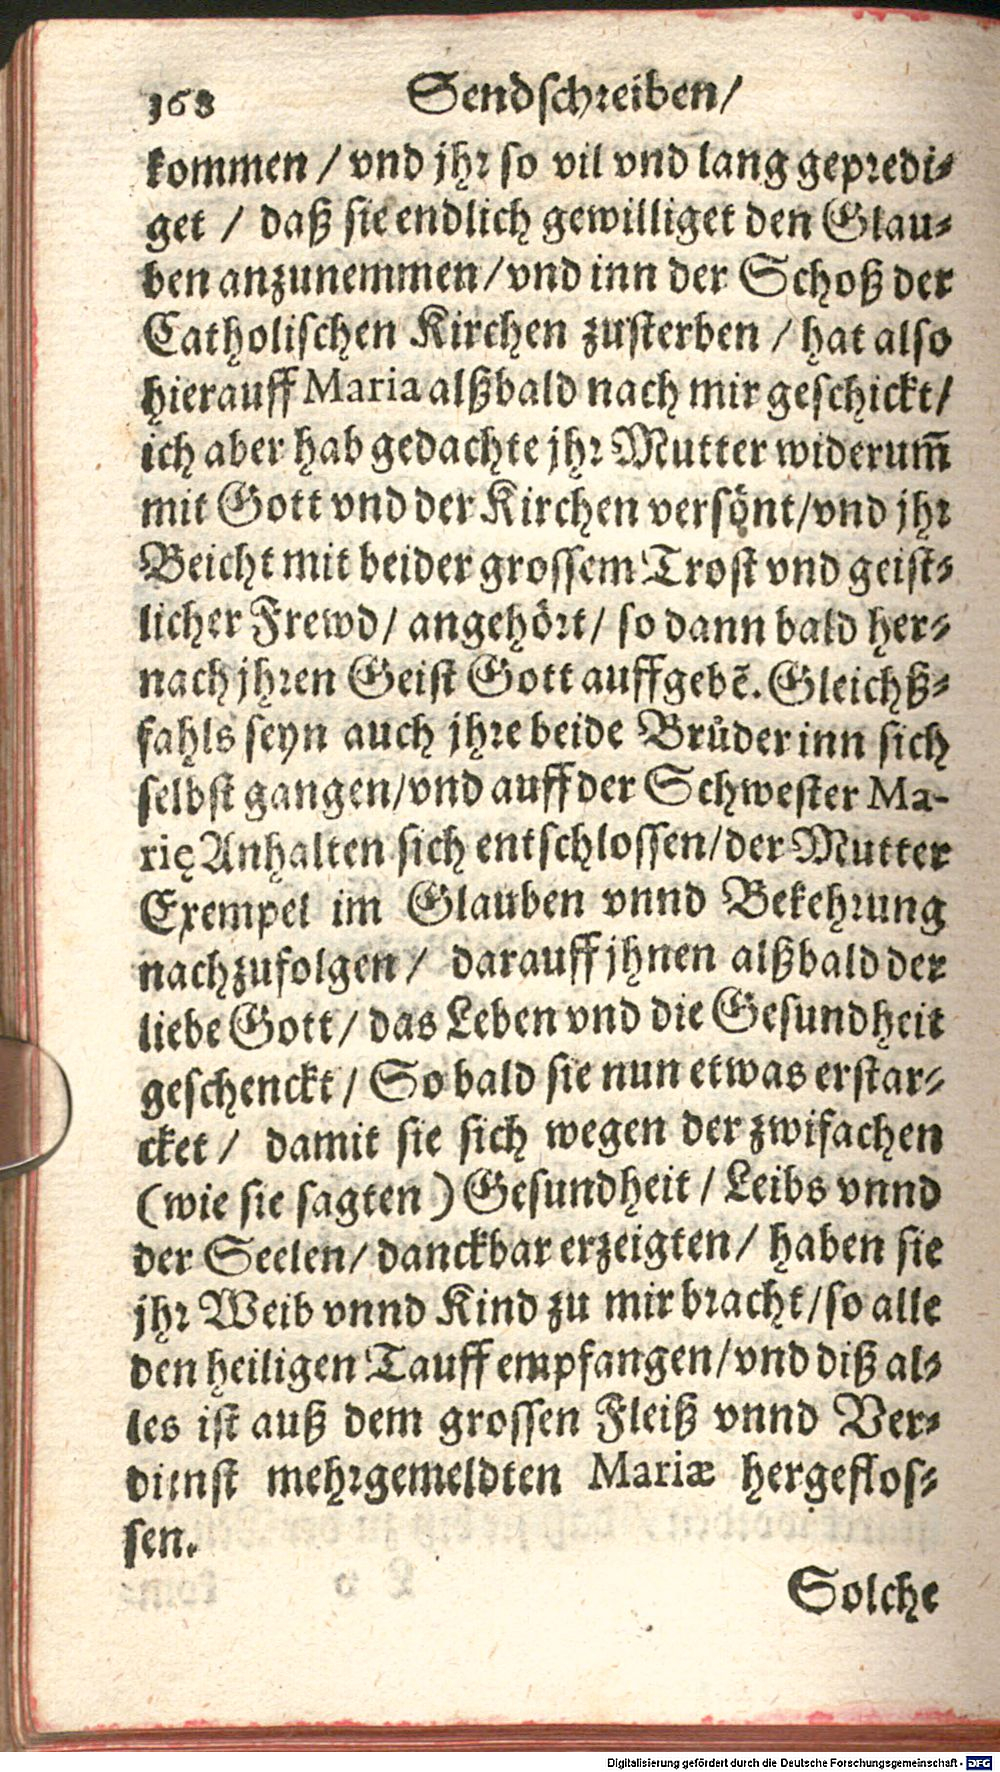 168 Sendschreiben/
kommen / vnd jhr so vil vnd lang gepredi⸗
get / daß sie endlich gewilliget den Glau⸗
ben anzunemmen/vnd inn der Schoß der
Catholischen Kirchen zusterben / hat also
hierauff Maria alßbald nach mir geschickt/
ich aber hab gedachte jhr Mutter widerum̃
mit Gott vnd der Kirchen versönt/vnd jhr
Beicht mit beider grossem Trost vnd geist⸗
licher Frewd/ angehört/ so dann bald her⸗
nach jhren Geist Gott auffgebẽ. Gleichß⸗
fahls seyn auch jhre beide Brůder inn sich
selbst gangen/vnd auff der Schwester Ma-
rię Anhalten sich entschlossen/der Mutter
Exempel im Glauben vnnd Bekehrung
nachzufolgen / darauff jhnen alßbald der
liebe Gott / das Leben vnd die Gesundheit
geschenckt / So bald sie nun etwas erstar⸗
cket / damit sie sich wegen der zwifachen
(wie sie sagten) Gesundheit / Leibs vnnd
der Seelen/ danckbar erzeigten/ haben sie
jhr Weib vnnd Kind zu mir bracht/so alle
den heiligen Tauff empfangen/vnd diß al⸗
les ist auß dem grossen Fleiß vnnd Ver⸗
dienst mehrgemeldten Mariæ hergeflos⸗
sen.
Solche
Digitalisierung gefördert durch die Deutsche Forschungsgemeinschaft - DFG